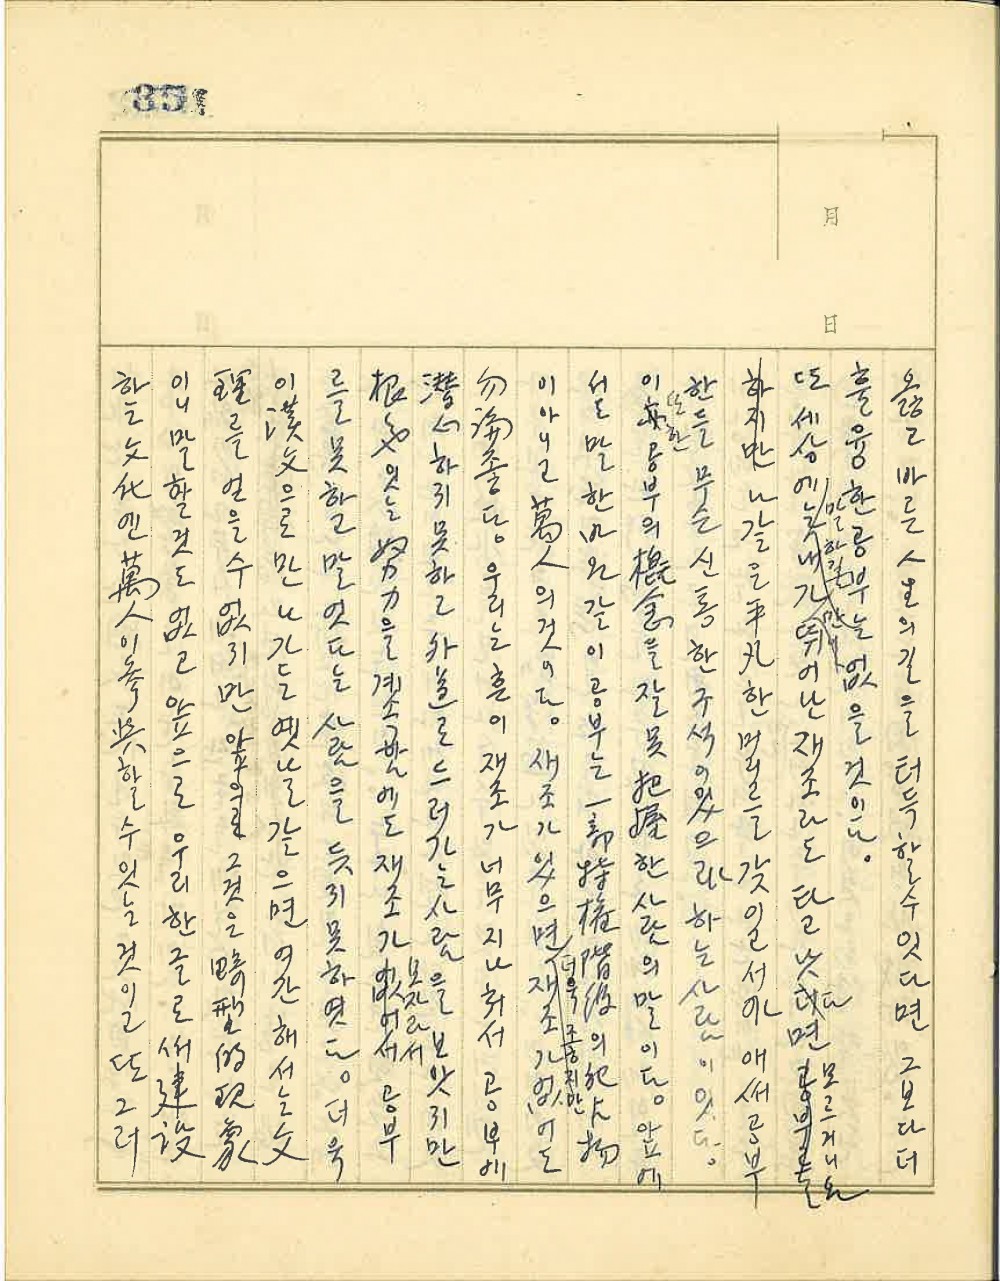 85
月
日
옳고 바른 人生의 길을 터득할 수 있다면 그보다 더
훌융한 공부는 없을 것이다.
또 세상에는 말하길 내가 만일 뛰어난 재조라도 타고 낫다면 모르거니와
하지만 나 같은 平凡한 머리를 갖일서야 애써 공부
한들 무슨 신통한 구석이 있으랴 하는 사람이 있다.
이 또한 공부의 槪念을 잘 못 把握한 사람의 말이다. 앞에
서도 말한 바와 같이 공부는 一部 特權階級의 私有物
이 아니고 萬人의 것이다. 재조가 있으면 더욱 조흐지만 재조가 없어도
勿論 좋다. 우리는 흔이 재조가 너무 지나처서 공부에
潛心하지 못하고 外道로 드러가는 사람을 보앗지만
根氣있는 努力을 계속함에도 재조가 모자라서 공부
를 못하고 말엇다는 사람을 듯지 못하엿다. 더욱
이 漢文으로만 나가든 옛날 같으면 여간해서는 文
理를 얻을 수 없지만 그것은 畸型的 現象
이니 말할 것도 없고 앞으로 우리 한글로써 建設
하는 文化엔 萬人이 參與할 수 있는 것이고 또 그러